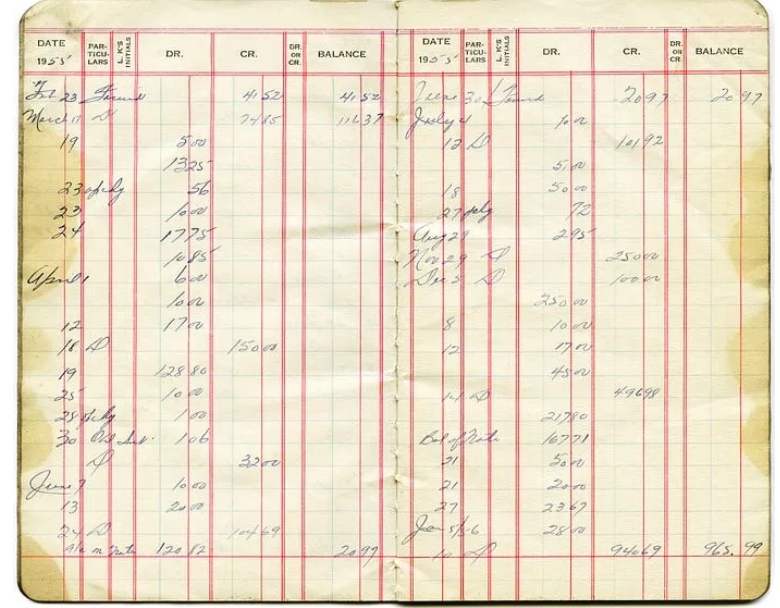 DATE PAR-TICU-LARS L. K'S INITIALS DR. CR. DR. OR CR. BALANCE
1955
Feb 23 Found 41 52 41 52
March 11 D 74 85 116 37
19 5 00
13 25
23 56
23 10 00
24 17 75
10 85
April 1 6 00
10 00
12 17 00
18 D 150 00
19 128 80
25 10 00
28 1 00
30 1 06
D 32 00
June 7 10 00
13 20 00
24 D 104 69
a/c n note 120 82 20 97
DATE PAR-TICU-LARS L. K'S INITIALS DR. CR. DR. OR CR. BALANCE
1955
June 30 Found 20 97 20 97
July 4 10 00
12 D 101 92
5 00
18 50 00
27 72
Aug 29 2 95
Nov 29 D 250 00
Dec 5 D 100 00
250 00
8 10 00
12 17 00
45 00
14 D 496 98
217 80
Bal of Note 167 71
21 50 00
21 20 00
27 23 67
Jan 5/56 28 00
10 D 940 69 965.99